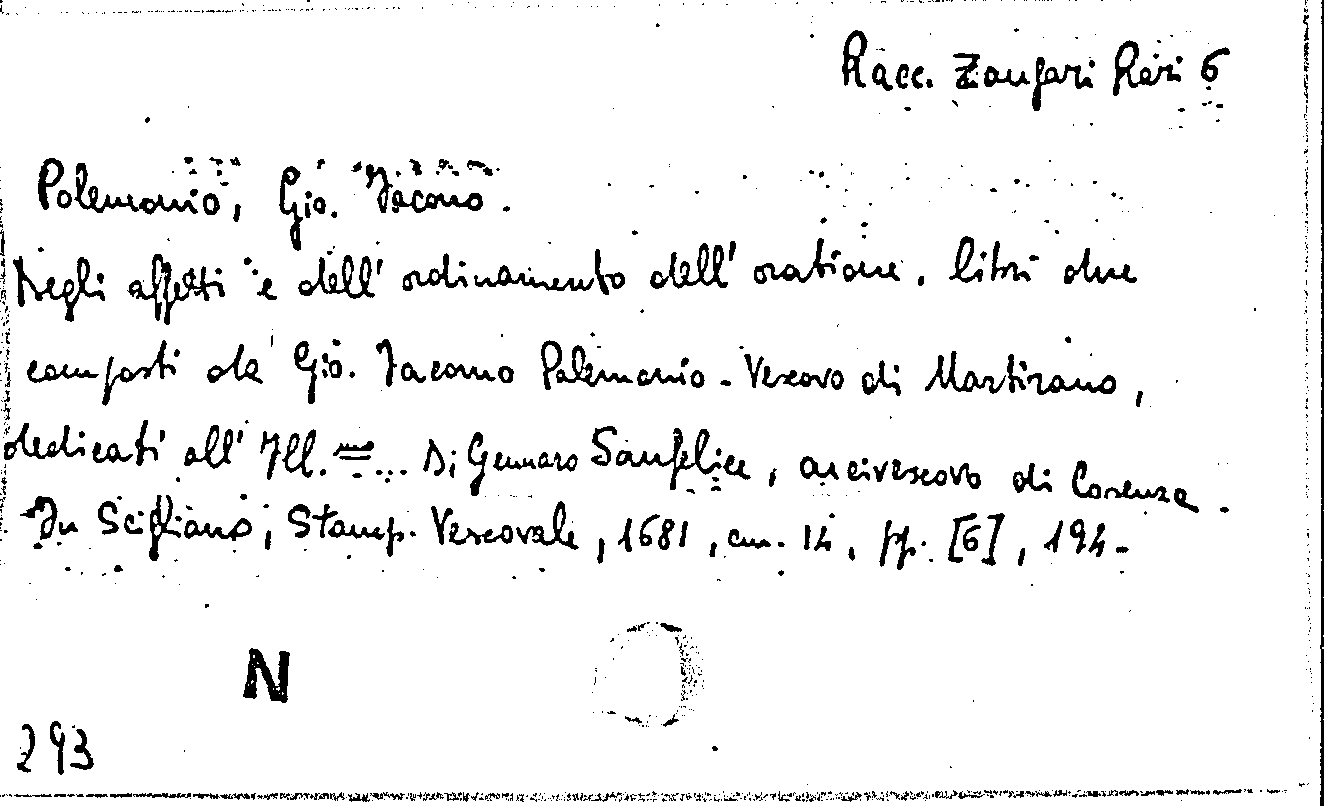 Racc. Zanfari Rari 6
Palemonio, Gio. Jacono.
Degli affetti e dell' ordinamento dell' oratione. libri due
composti da Gio. Jacomo Palemonio - Vescovo di Martirano,
dedicati all' Ill. ... Di Gennaro Sanfelice, arcivescovo di Cosenza.
In Scigliano, Stamp. Vescovale, 1681, cm. 14, pp. [6], 194.
N
293